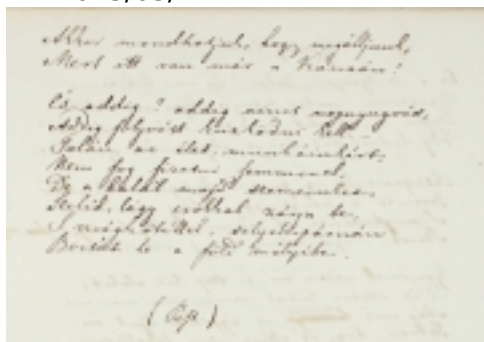 Akkor mondhatjuk, hogy megálljunk,
Mert itt van már a Kánaán!
És addig? addig nincs megnyugvás,
Addig folyvást küszködni kell. –
Talán az élet, munkáinkért,
Nem fog fizetni semmivel,
De a halál majd szemeinket
Szelid, lágy csókkal zárja be,
S virágkötéllel, selyempárnán
Bocsát le a föld mélyibe.
(Pest.)